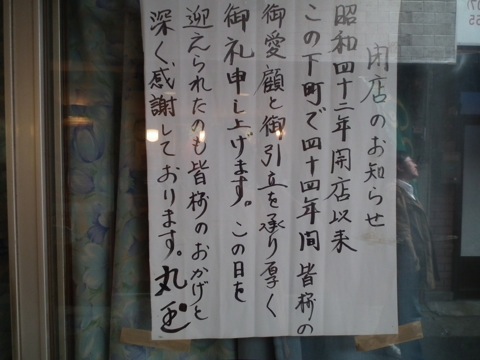 閉店のお知らせ
昭和四十二年開店以来
この下町で四十四年間皆様の
御愛顧と御引立を承り厚く
御礼申し上げます。この日を
迎えられたのも皆様のおかげと
深く感謝しております。丸玉